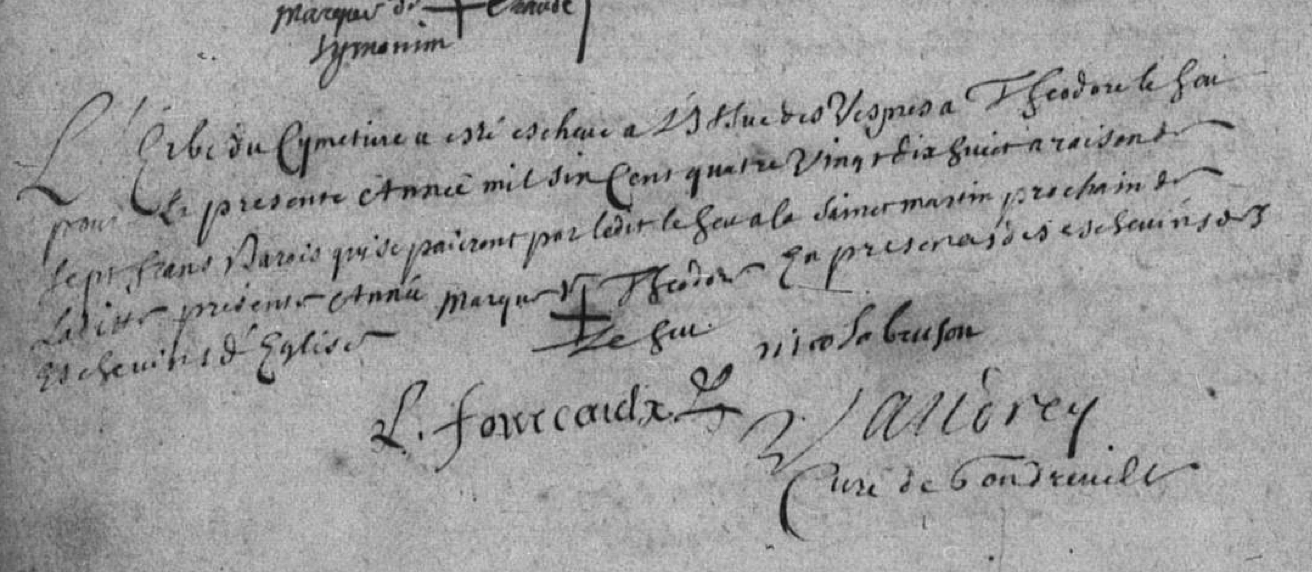 marque de + Claude
Symonin
L'Erbe du Cymetiere a esté escheue a L'Issue des Vespres a Theodore le heu
pour la presente Année mil six Cent quatre Vingt dix huict a raison de
sept frans Barois qui se paieront par ledit le heu a la sainct martin prochain de
Laditte presente Année marque de + Theodore En presences des eschevins
Eschevins d'Eglise Le heu nicolas
L. fourcaulx
Curé de Gondreville